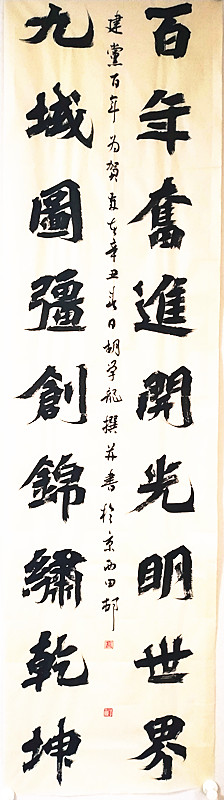 百年奮進開光明世界
建黨百年为賀歲在辛丑春日胡龍撰并書於京西田邨
九域圖彊創錦繡乾坤